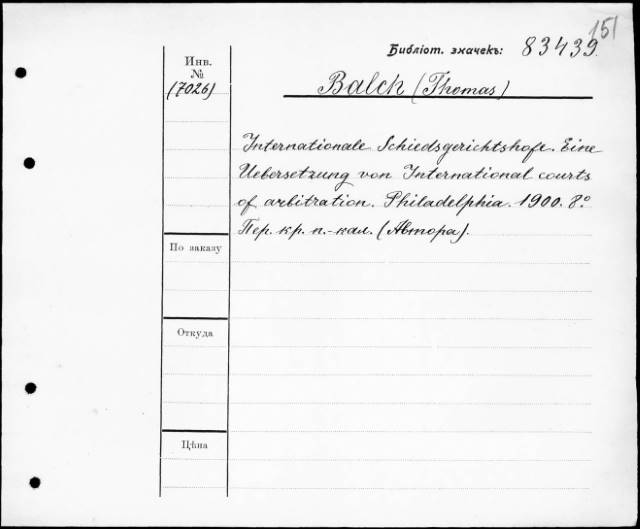 151
Библіот. значекъ: 83439
Инв.
№
(7026)
Balch (Thomas)
Internationale Schiedsgerichtshofe. Eine
Uebersetzung von International courts
of arbitration. Philadelphia. 1900. 8.º
Пер. кр. п.-кал. (Автора).
По заказу
Откуда
Цѣна